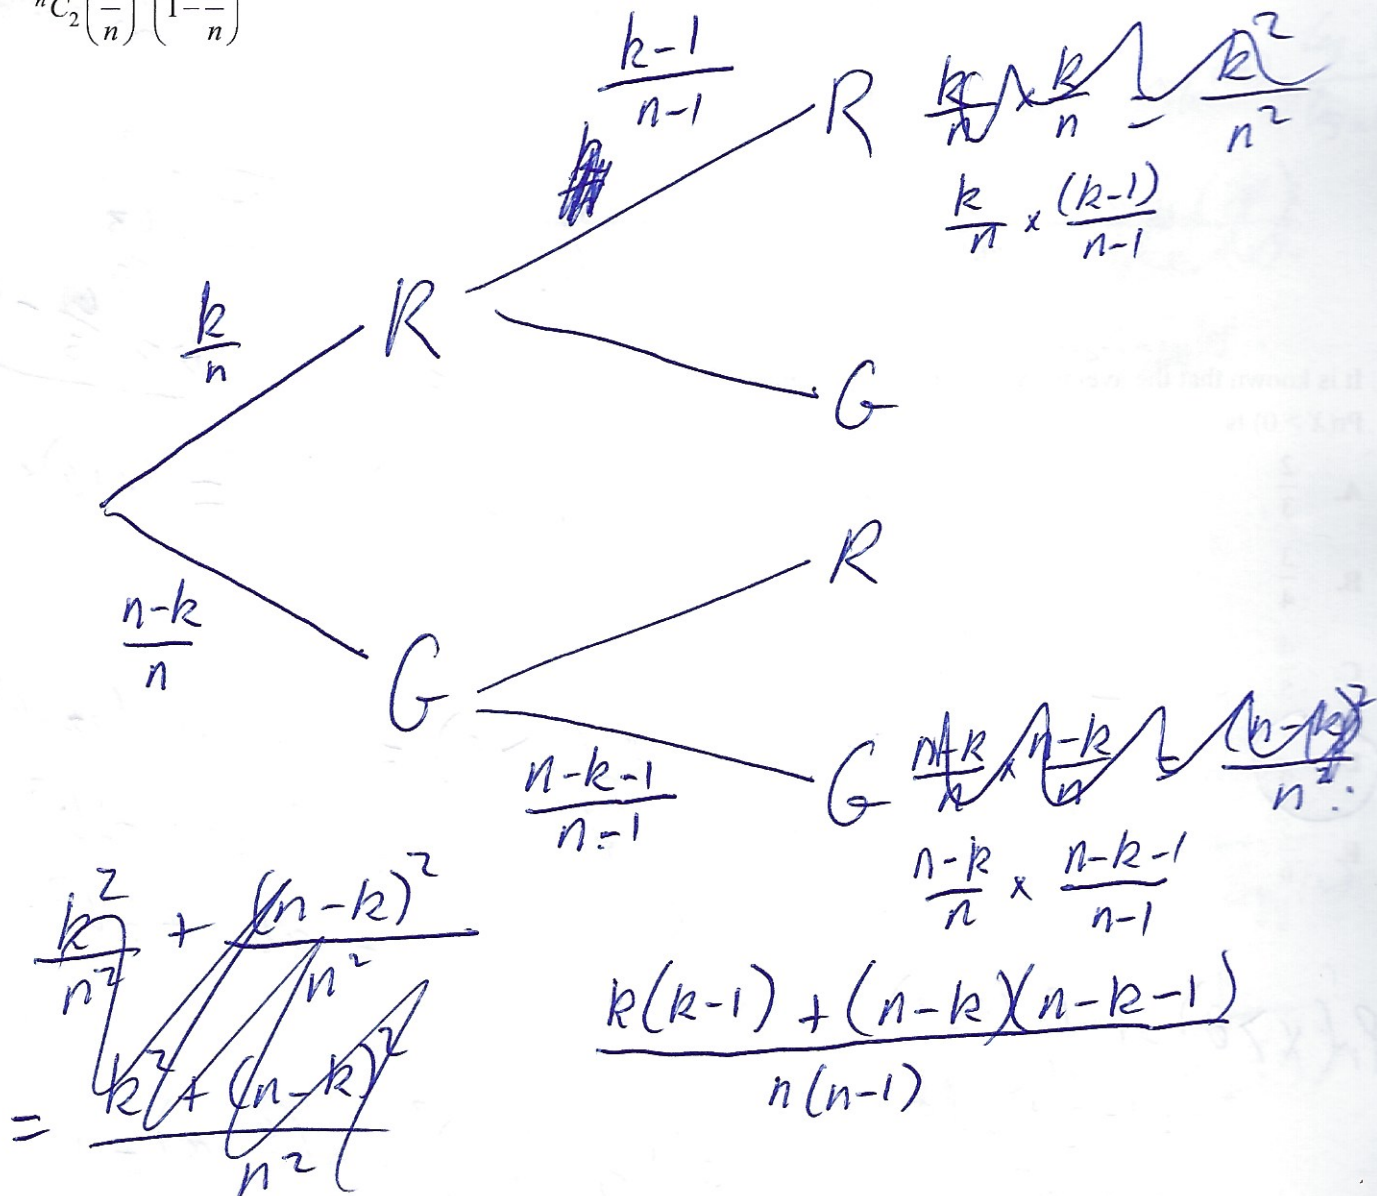 ⁿC₂(—/n) (1 - —/n)
(k-1)/(n-1)
R k/n × k/n = k²/n²
k/n × (k-1)/(n-1)
k/n
R
G
R
(n-k)/n
G
(n-k-1)/(n-1)
G (n-k)/n × (n-k)/n = (n-k)²/n²
(n-k)/n × (n-k-1)/(n-1)
k²/n² + (n-k)²/n²
= (k² + (n-k)²)/n²
(k(k-1) + (n-k)(n-k-1))/(n(n-1))